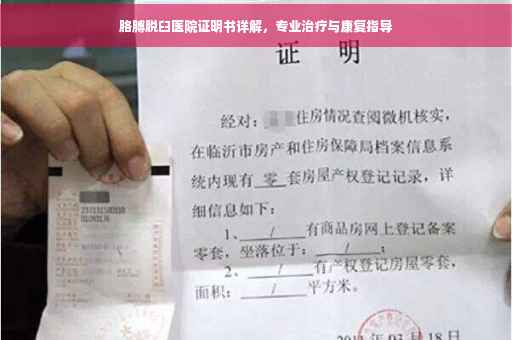 胳膊脱臼医院证明书详解，专业治疗与康复指导
证 明
经对：住房情况查阅微机核实，
在临沂市房产和住房保障局档案信息系
统内现有 零 套房屋产权登记记录，详
细信息如下：
1、 / 有商品房网上登记备案
零套，坐落位于： / ；
2、 / 有产权登记房屋零套，
面积： / 平方米。
03月18日